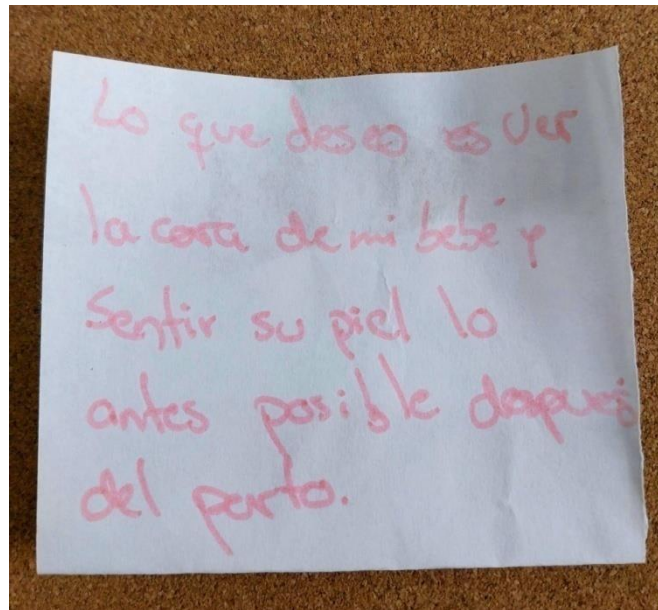 Lo que deseo es Ver
la cara de mi bebé y
Sentir su piel lo
antes posible después
del parto.